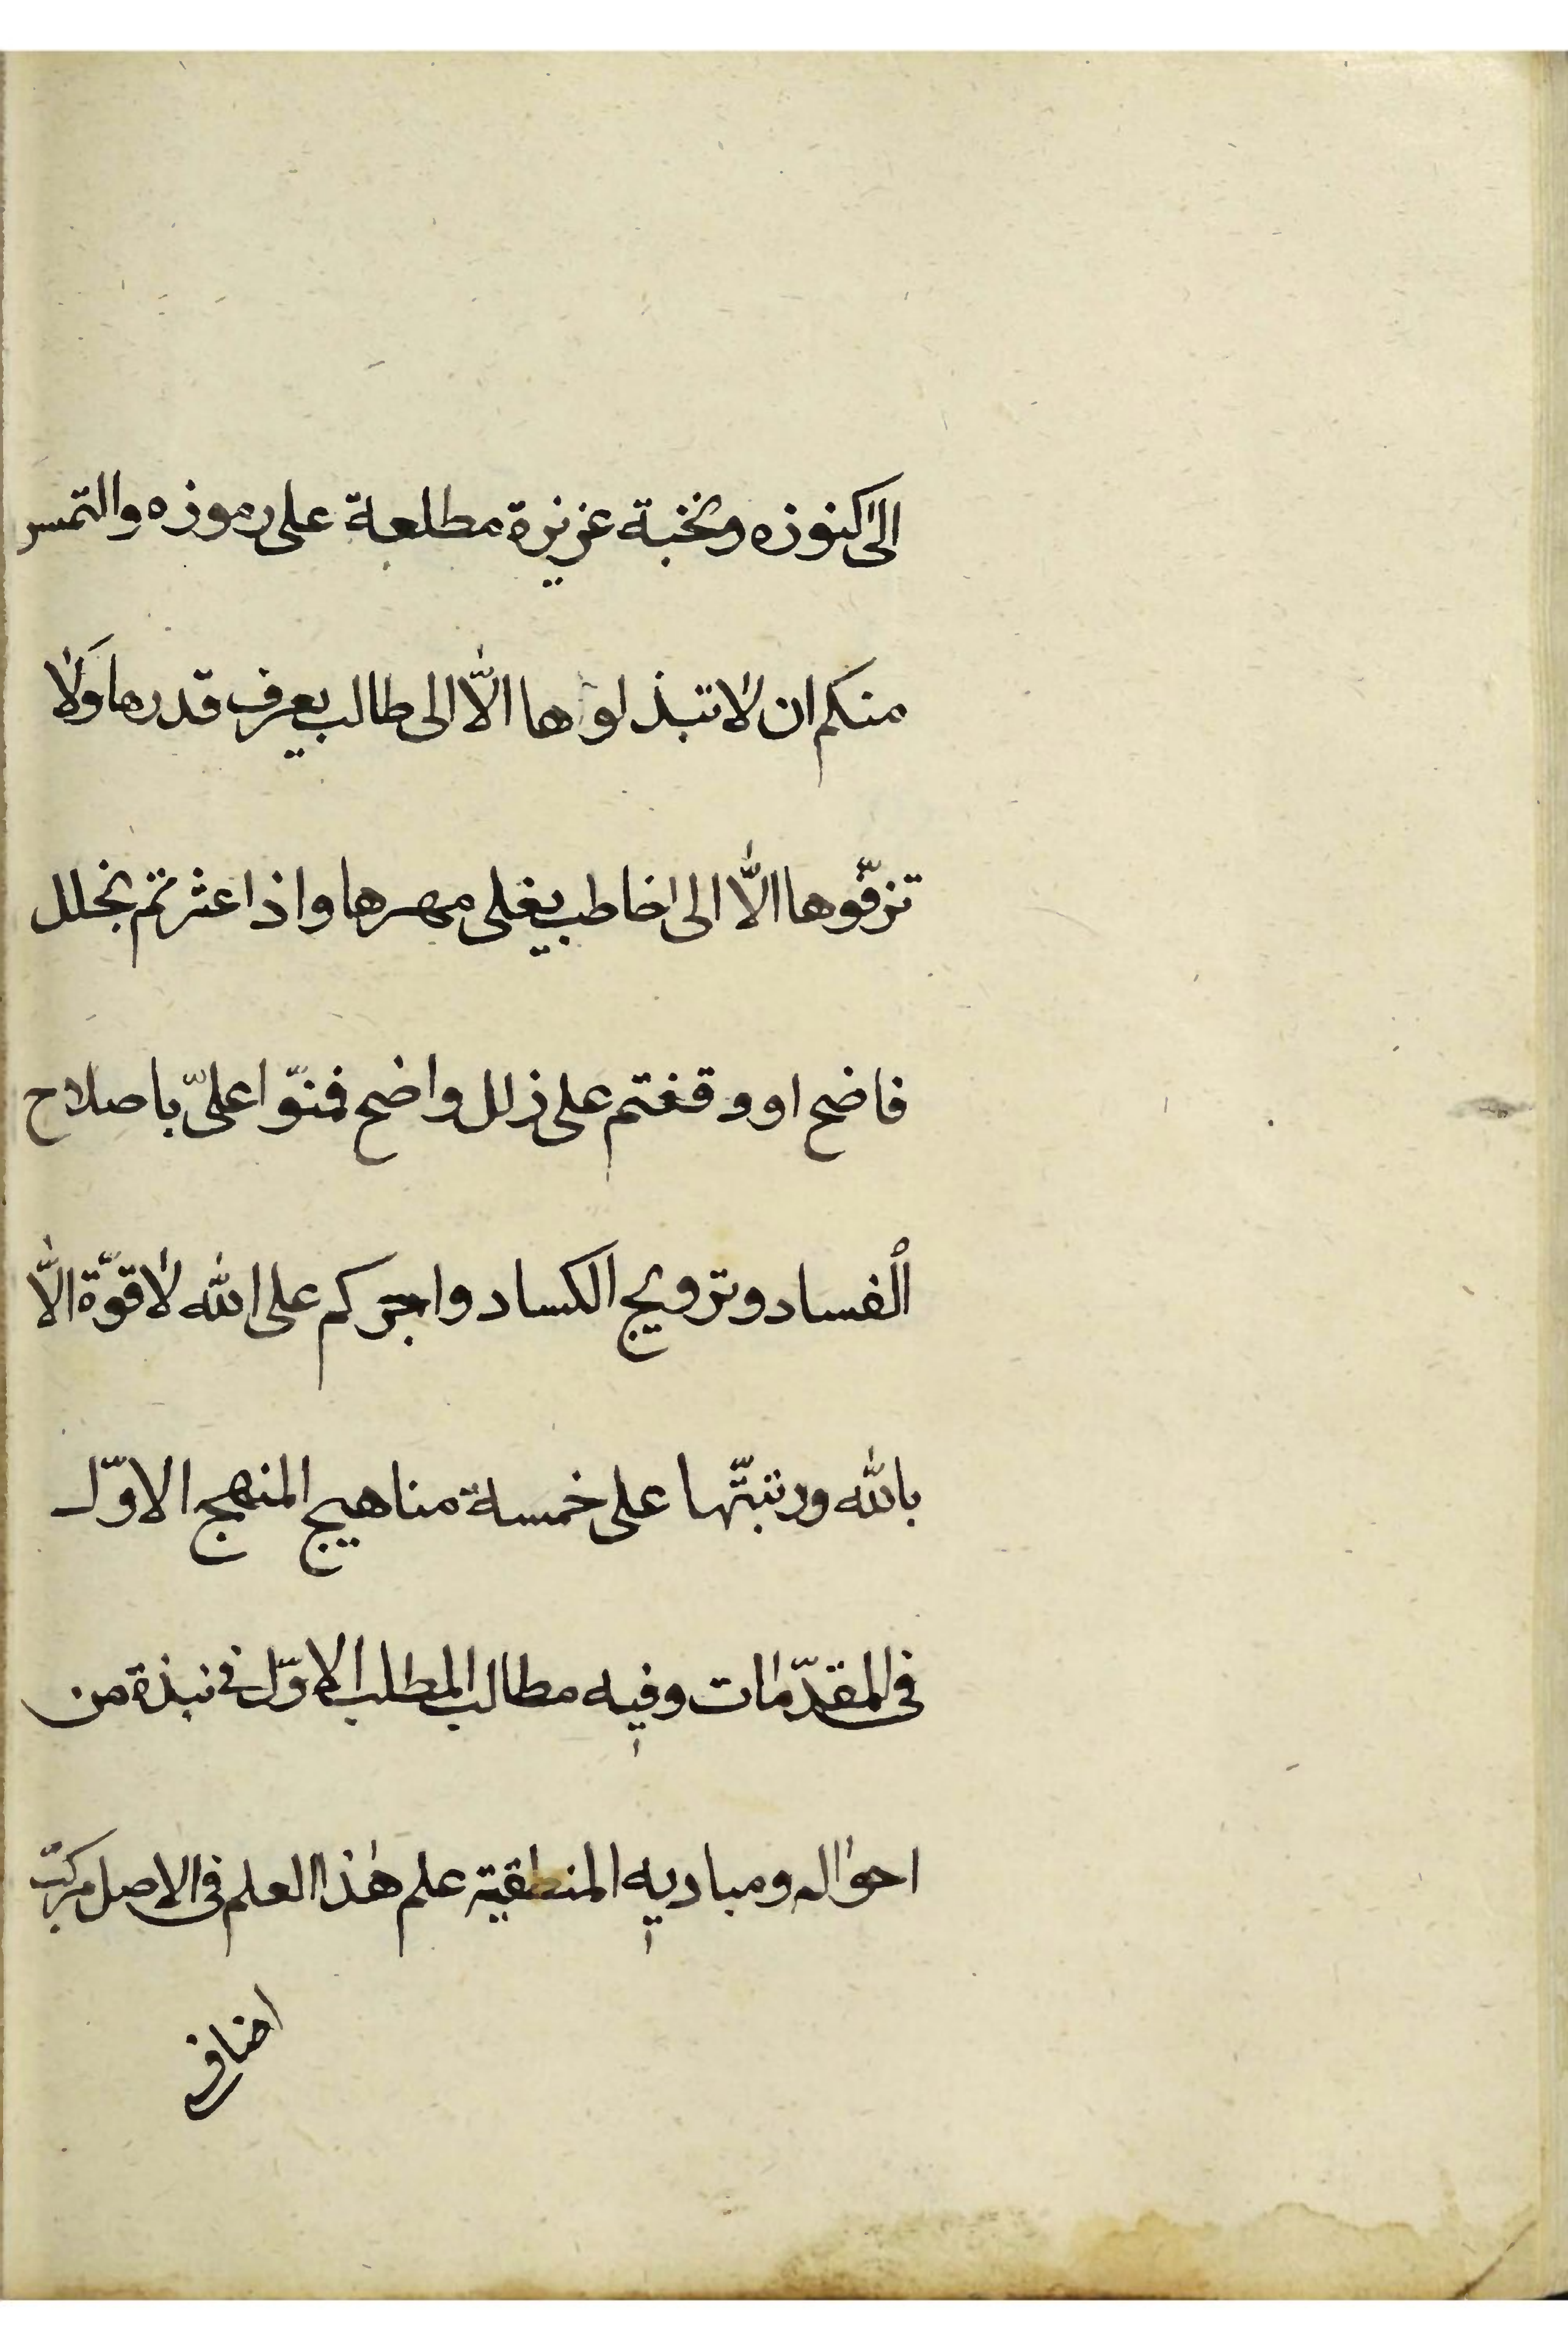 الى كنوزه ونخبة عزيزة مطلعة على رموزه والتمس
منكم ان لا تبذلوها الّا الى طالب يعرف قدرها ولا
تزفّوها الّا الى خاطب يغلى مهرها واذا عثرتم بخلل
فاضح او وقفتم على زلل واضح فمنّوا علىّ باصلاح
الفساد وترويج الكساد واجركم على الله لا قوّة الّا
بالله ورتبتّها على خمسة مناهيج المنهج الاوّل
فى المقدّمات وفيه مطالب المطلب الاوّل فى نبذة من
احواله ومباديه المنطقية علم هذا العلم فى الاصل مركّب
اضافى